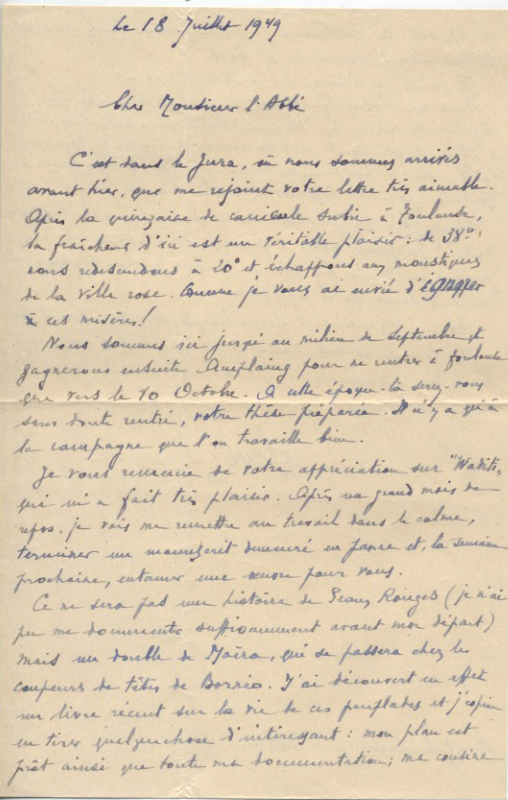 Le 18 Juillet 1949
Cher Monsieur l'Abbé
C'est dans le Jura, où nous sommes arrivés
avant hier, que me rejoint votre lettre très aimable.
Après la quinzaine de canicule subie à Toulouse,
la fraîcheur d'ici est un véritable plaisir : de 38°
nous redescendons à 20° et échappons aux moustiques
de la ville rose. Comme je vous ai envié d'échapper
à ces misères !
Nous sommes ici jusqu'au milieu de Septembre et
gagnerons ensuite Amplaing pour ne rentrer à Toulouse
que vers le 10 Octobre. A cette époque-là serez-vous
sans doute rentré, votre thèse préparée. Il n'y a qu'à
la campagne que l'on travaille bien.
Je vous remercie de votre appréciation sur "Wakiti"
qui m'a fait très plaisir. Après un grand mois de
repos, je vais me remettre au travail dans le calme,
terminer un manuscrit demeuré en panne et, la semaine
prochaine, entamer une œuvre pour vous.
Ce ne sera pas une histoire de Peaux Rouges (je n'ai
pu me documenter suffisamment avant mon départ)
mais un double de Maïra, qui se passera chez les
coupeurs de têtes de Bornéo. J'ai découvert en effet
un livre récent sur la vie de ces peuplades et j'espère
en tirer quelquechose d'intéressant : mon plan est
prêt ainsi que toute ma documentation ; ma cousine